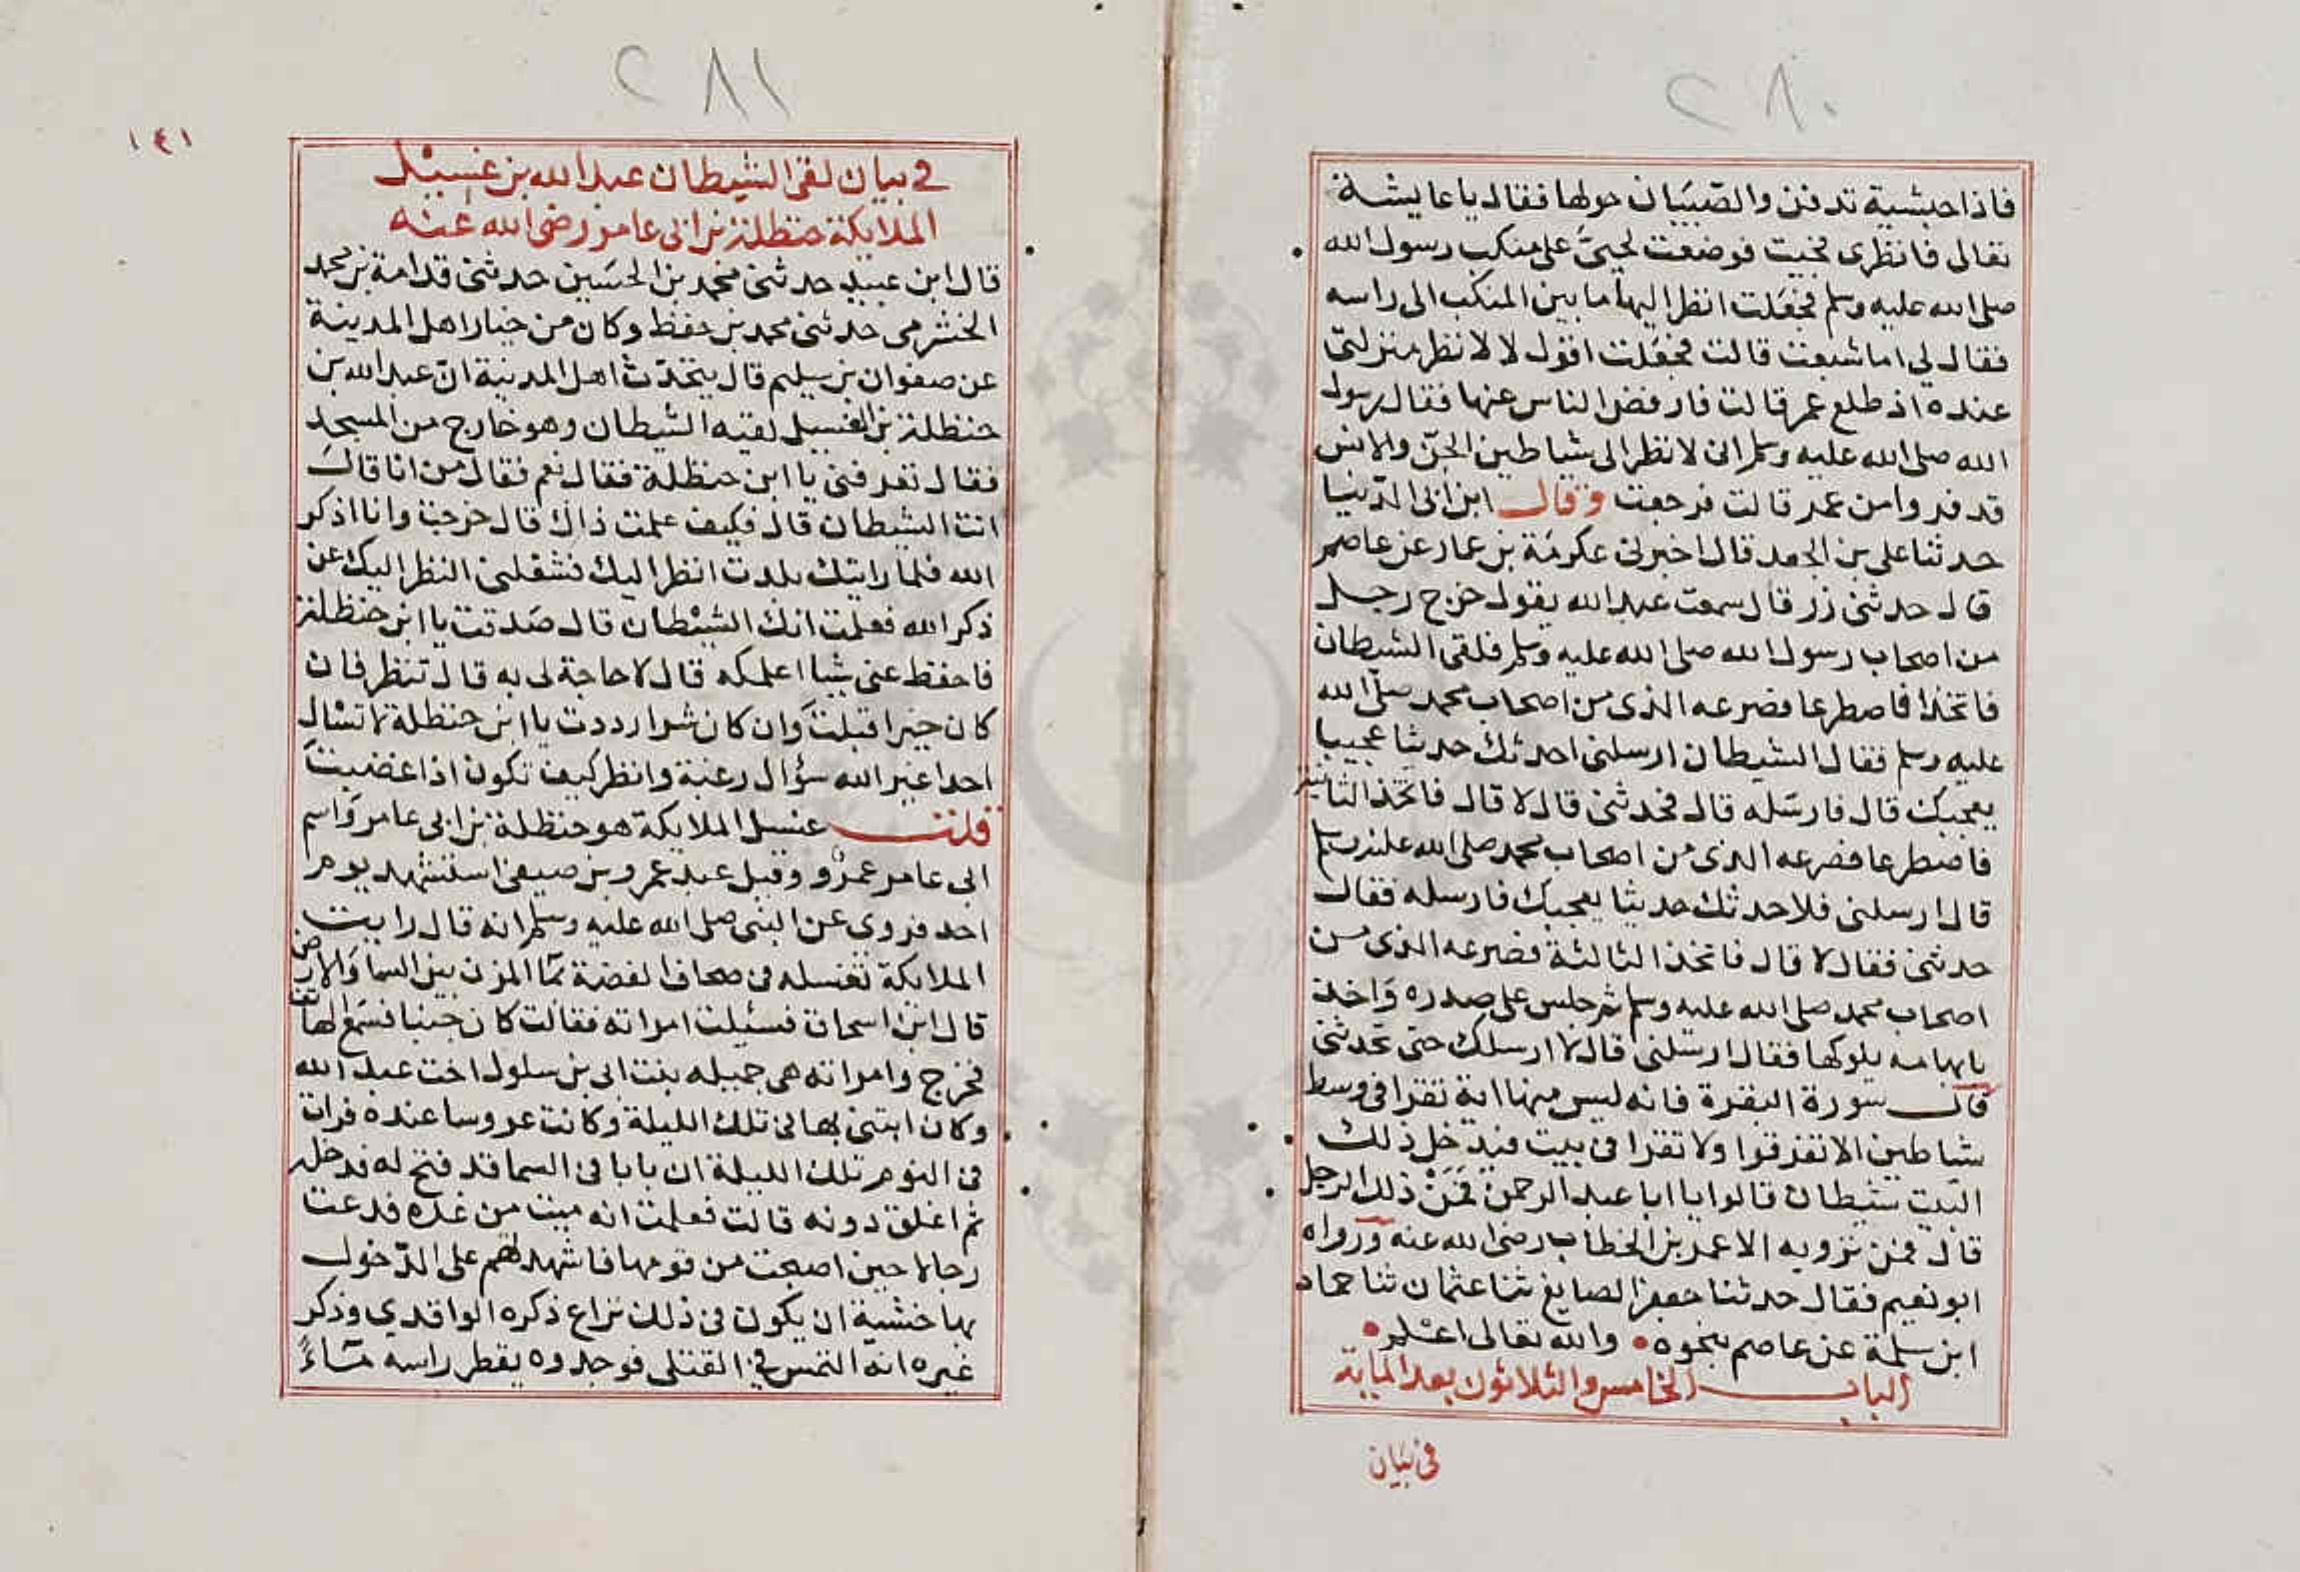 ٢٨٠
فاذا حبشية تدفن والصبيان حولها فقال يا عايشة
تعالى فانظرى فجيت فوضعت لحيى على منكب رسول الله
صلى الله عليه وسلم فجعلت انظر اليها ما بين المنكب الى راسه
فقال لي اما شبعت قالت فجعلت اقول لا لانظر منزلتى
عنده اذ طلع عمر قالت فارفض الناس عنها فقال رسول
الله صلى الله عليه وسلم انى لانظر الى شياطين الجن والانس
قد فروا من عمر قالت فرجعت وقال ابن ابى الدنيا
حدثنا على بن الجعد قال اخبرنى عكرمة بن عمار عن عاصم
قال حدثنى زر قال سمعت عبد الله يقول خرج رجل
من اصحاب رسول الله صلى الله عليه وسلم فلقى الشيطان
فاتخذا فاصطرعا فصرعه الذى من اصحاب محمد صلى الله
عليه وسلم فقال الشيطان ارسلنى احدثك حديثا عجيبا
يعجبك قال فارسله قال فحدثنى قال لا قال فاتخذ الثانية
فاصطرعا فصرعه الذى من اصحاب محمد صلى الله عليه وسلم
قال ارسلنى فلاحدثك حديثا يعجبك فارسله فقال
حدثنى فقال لا قال فاتخذ الثالثة فصرعه الذى من
اصحاب محمد صلى الله عليه وسلم ثم جلس على صدره واخذ
بابهامه يلوكها فقال ارسلنى قال لا ارسلك حتى تحدثنى
قال سورة البقرة فانه ليس منها اية تقرا فى وسط
شياطين الا تفرقوا ولا تقرا فى بيت فيدخل ذلك
البيت شيطان قالوا يا ابا عبد الرحمن فمن ذلك الرجل
قال فمن ترويه الا عمر بن الخطاب رضى الله عنه ورواه
ابو نعيم فقال حدثنا جعفر الصايغ ثنا عثمان ثنا حماد
ابن سلمة عن عاصم بنحوه والله تعالى اعلم
الباب الخامس والثلاثون بعد الماية
فى بيان
٢٨١
١٤١
في بيان لقى الشيطان عبد الله بن غسيل
الملايكة حنظلة بن ابى عامر رضى الله عنه
قال ابن عبيد حدثنى محمد بن الحسين حدثنى قدامة بن محمد
الخشرمى حدثنى محمد بن حفظ وكان من خيار اهل المدينة
عن صفوان بن سليم قال يتحدث اهل المدينة ان عبد الله بن
حنظلة بن الغسيل لقيه الشيطان وهو خارج من المسجد
فقال تعرفنى يا ابن حنظلة فقال نعم فقال من انا قال
انت الشيطان قال فكيف علمت ذاك قال خرجت وانا اذكر
الله فلما رايتك بلدت انظر اليك فشغلنى النظر اليك عن
ذكر الله فعلمت انك الشيطان قال صدقت يا ابن حنظلة
فاحفظ عنى شيا اعلمكه قال لا حاجة لى به قال تنظر فان
كان خيرا قبلت وان كان شرا رددت يا ابن حنظلة لا تسال
احدا غير الله سؤال رغبة وانظر كيف تكون اذا غضبت
قلت غسيل الملايكة هو حنظلة بن ابى عامر واسم
ابى عامر عمرو وقيل عبد عمرو بن صيفى استشهد يوم
احد فروى عن النبى صلى الله عليه وسلم انه قال رايت
الملايكة تغسله فى صحاف الفضة بما المزن بين السما والارض
قال ابن اسحاق فسئلت امراته فقالت كان جنبا فسمع الهاتف
فخرج وامراته هى جميله بنت ابى بن سلول اخت عبد الله
وكان ابتنى بها فى تلك الليلة وكانت عروسا عنده فرات
فى النوم تلك الليلة ان بابا فى السما قد فتح له فدخله
ثم اغلق دونه قالت فعلمت انه ميت من غده فدعت
رجالا حين اصبحت من قومها فاشهدتهم على الدخول
بها خشية ان يكون فى ذلك نزاع ذكره الواقدي وذكر
غيره انه التمس في القتلى فوجدوه يقطر راسه مآءً